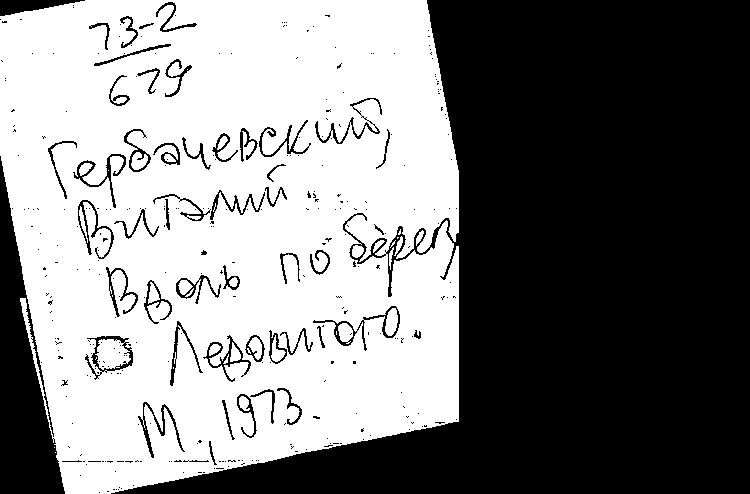 73-2
679
Гербачевский,
Виталий.
Вдоль по берегу
Ледовитого.
М., 1973.